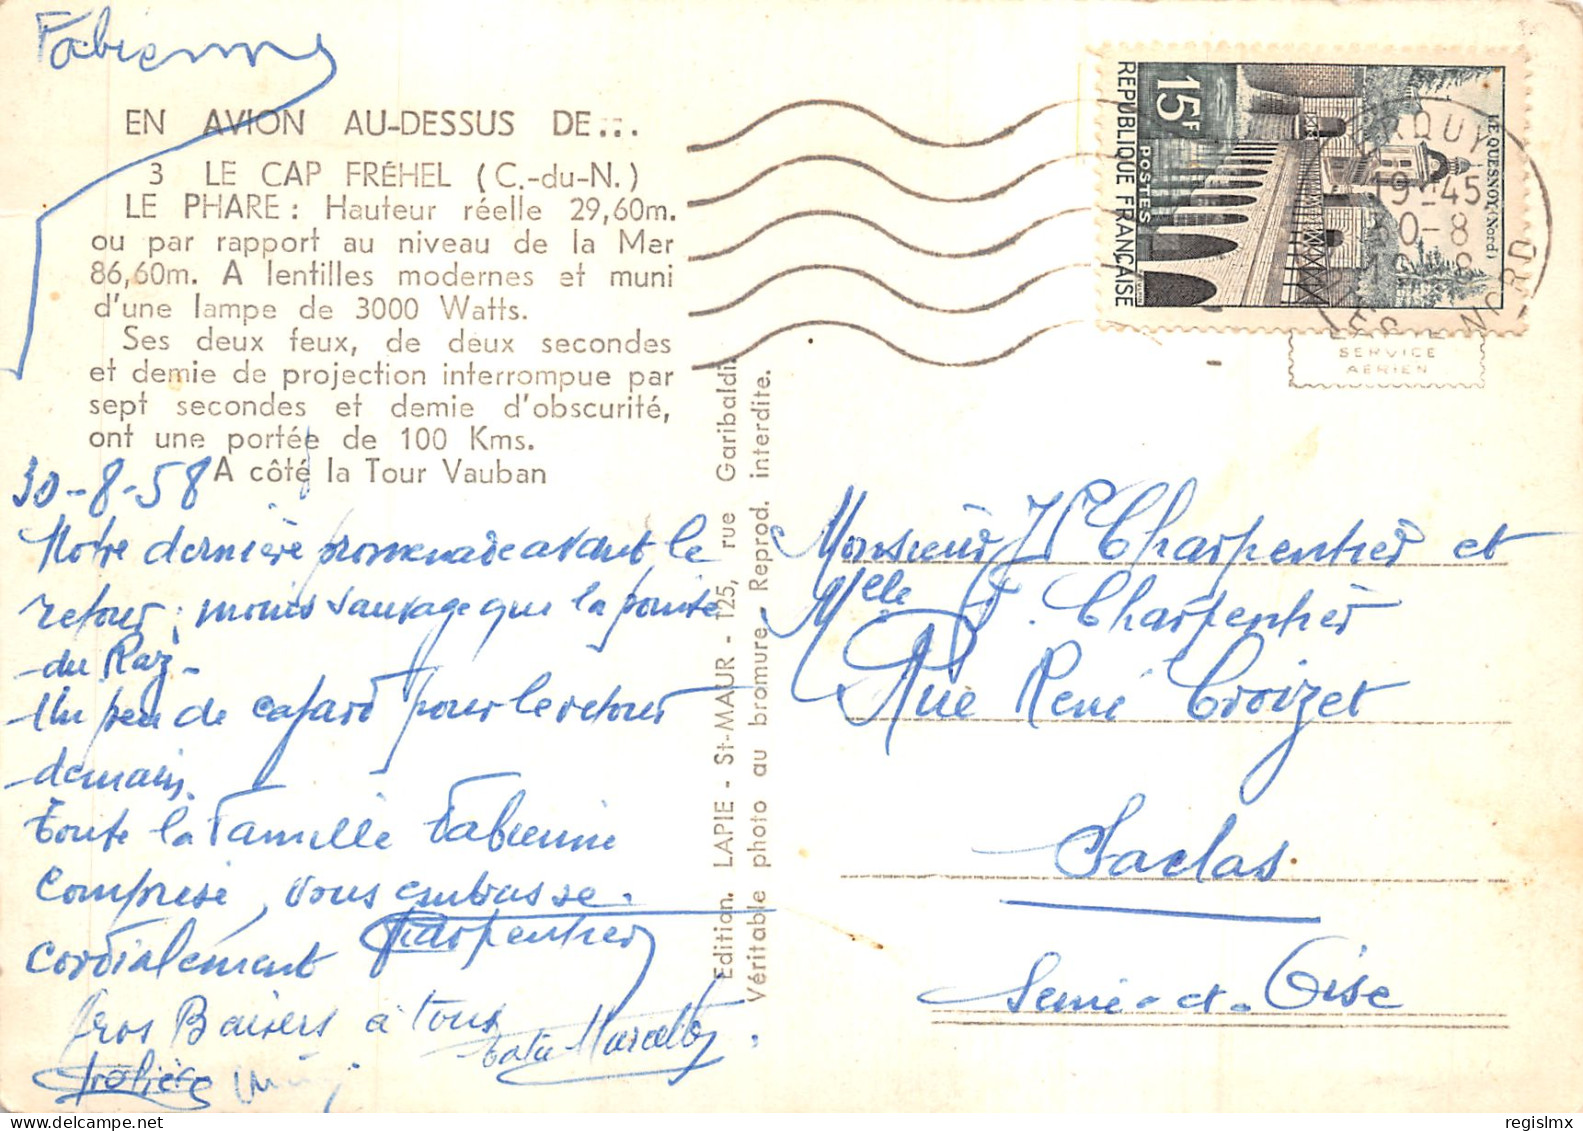 Fabienne
EN AVION AU-DESSUS DE...
3 LE CAP FRÉHEL (C.-du-N.)
LE PHARE : Hauteur réelle 29,60m.
ou par rapport au niveau de la Mer
86,60m. A lentilles modernes et muni
d'une lampe de 3000 Watts.
Ses deux feux, de deux secondes
et demie de projection interrompue par
sept secondes et demie d'obscurité,
ont une portée de 100 Kms.
A côté la Tour Vauban
30-8-58
Notre dernière promenade avant le
retour ; moins sauvage que la pointe
du Raz -
Un peu de cafard pour le retour
demain.
toute la famille Fabienne
comprise, vous embrasse.
cordialement Charpentier
Gros Baisers à tous
tata Marcelle
Edition. LAPIE - St-MAUR - 125, rue Garibaldi
Véritable photo au bromure. Reprod. interdite.
15F
POSTES
REPUBLIQUE FRANÇAISE
LE QUESNOY (Nord)
ERQUY
19-45
30-8
NORD
LAPIE
SERVICE
AERIEN
Monsieur Charpentier et
Melle Charpentier
Rue René Croizet
Saclas
Seine-et-Oise
regislmx